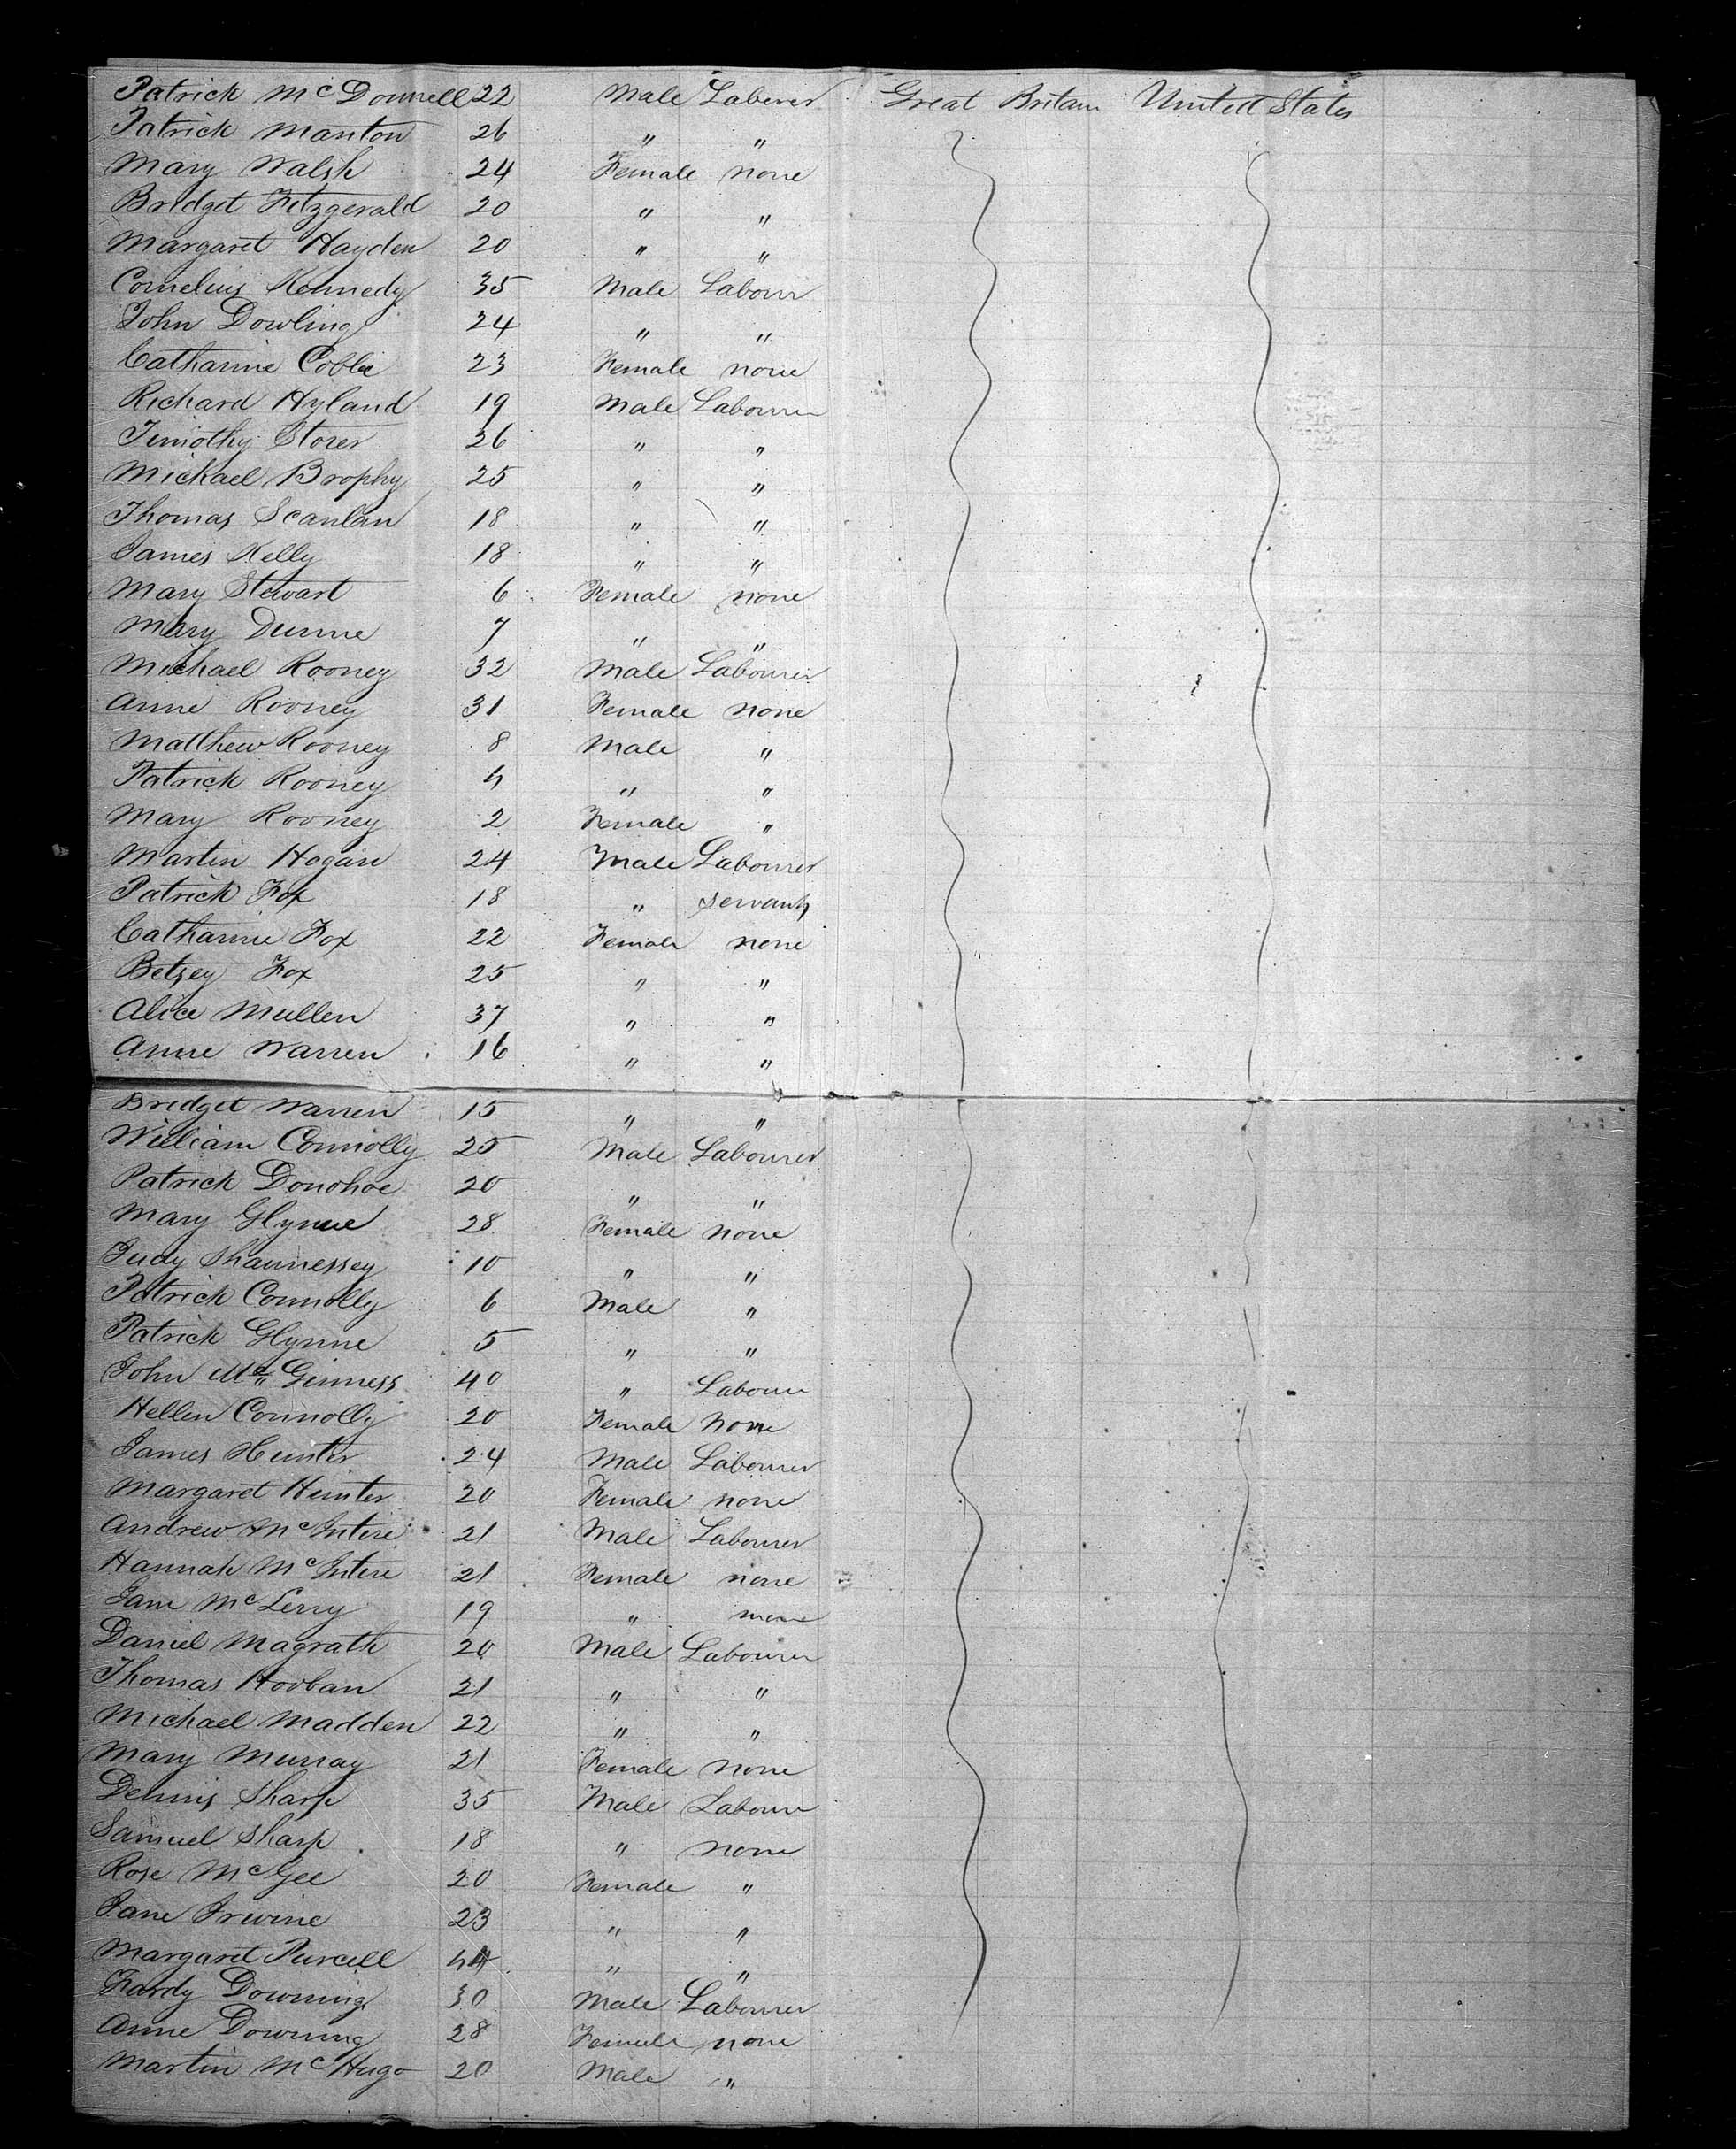 Patrick McDonnell 22 Male Laberer Great Britain United States
Patrick Manton 26 " "
Mary Walsh 24 Female none
Bridget Fitzgerald 20 " "
Margaret Hayden 20 " "
Cornelius Kennedy 35 Male Labour
John Dowling 24 " "
Catharine 23 Female none
Richard Hyland 19 Male Labourer
Timothy Storer 26 " "
Michael Brophy 25 " "
Thomas Scanlan 18 " "
James Kelly 18 " "
Mary Stewart 6 Female none
Mary Dunne 7 " "
Michael Rooney 32 Male Labourer
Anne Rooney 31 Female none
Matthew Rooney 8 Male "
Patrick Rooney 4 " "
Mary Rooney 2 Female "
Martin Hogan 24 Male Labourer
Patrick Fox 18 " servant
Catharine Fox 22 Female none
Betsey Fox 25 " "
Alice Mullen 37 " "
Anne Warren 16 " "
Bridget Warren 15 " "
William Connolly 25 Male Labourer
Patrick Donohoe 20 " "
Mary Glynne 28 Female none
Judy Shaunessey 10 " "
Patrick Connolly 6 Male "
Patrick Glynne 5 " "
John McGinness 40 " Labour
Hellen Connolly 20 Female none
James Hunter 24 Male Labourer
Margaret Hunter 20 Female none
Andrew McIntire 21 Male Labourer
Hannah McIntire 21 Female none
Jane 19 " none
Daniel Magrath 20 Male Labourer
Thomas Hooban 21 " "
Michael Madden 22 " "
Mary Murray 21 Female none
Dennis Sharp 35 Male Labour
Samuel Sharp 18 " none
Rose McGee 20 Female "
Jane Irwine 23 " "
Margaret Purcell 44 " "
Downing 30 Male Labourer
Anne Downing 28 Female none
Martin McHugo 20 Male "